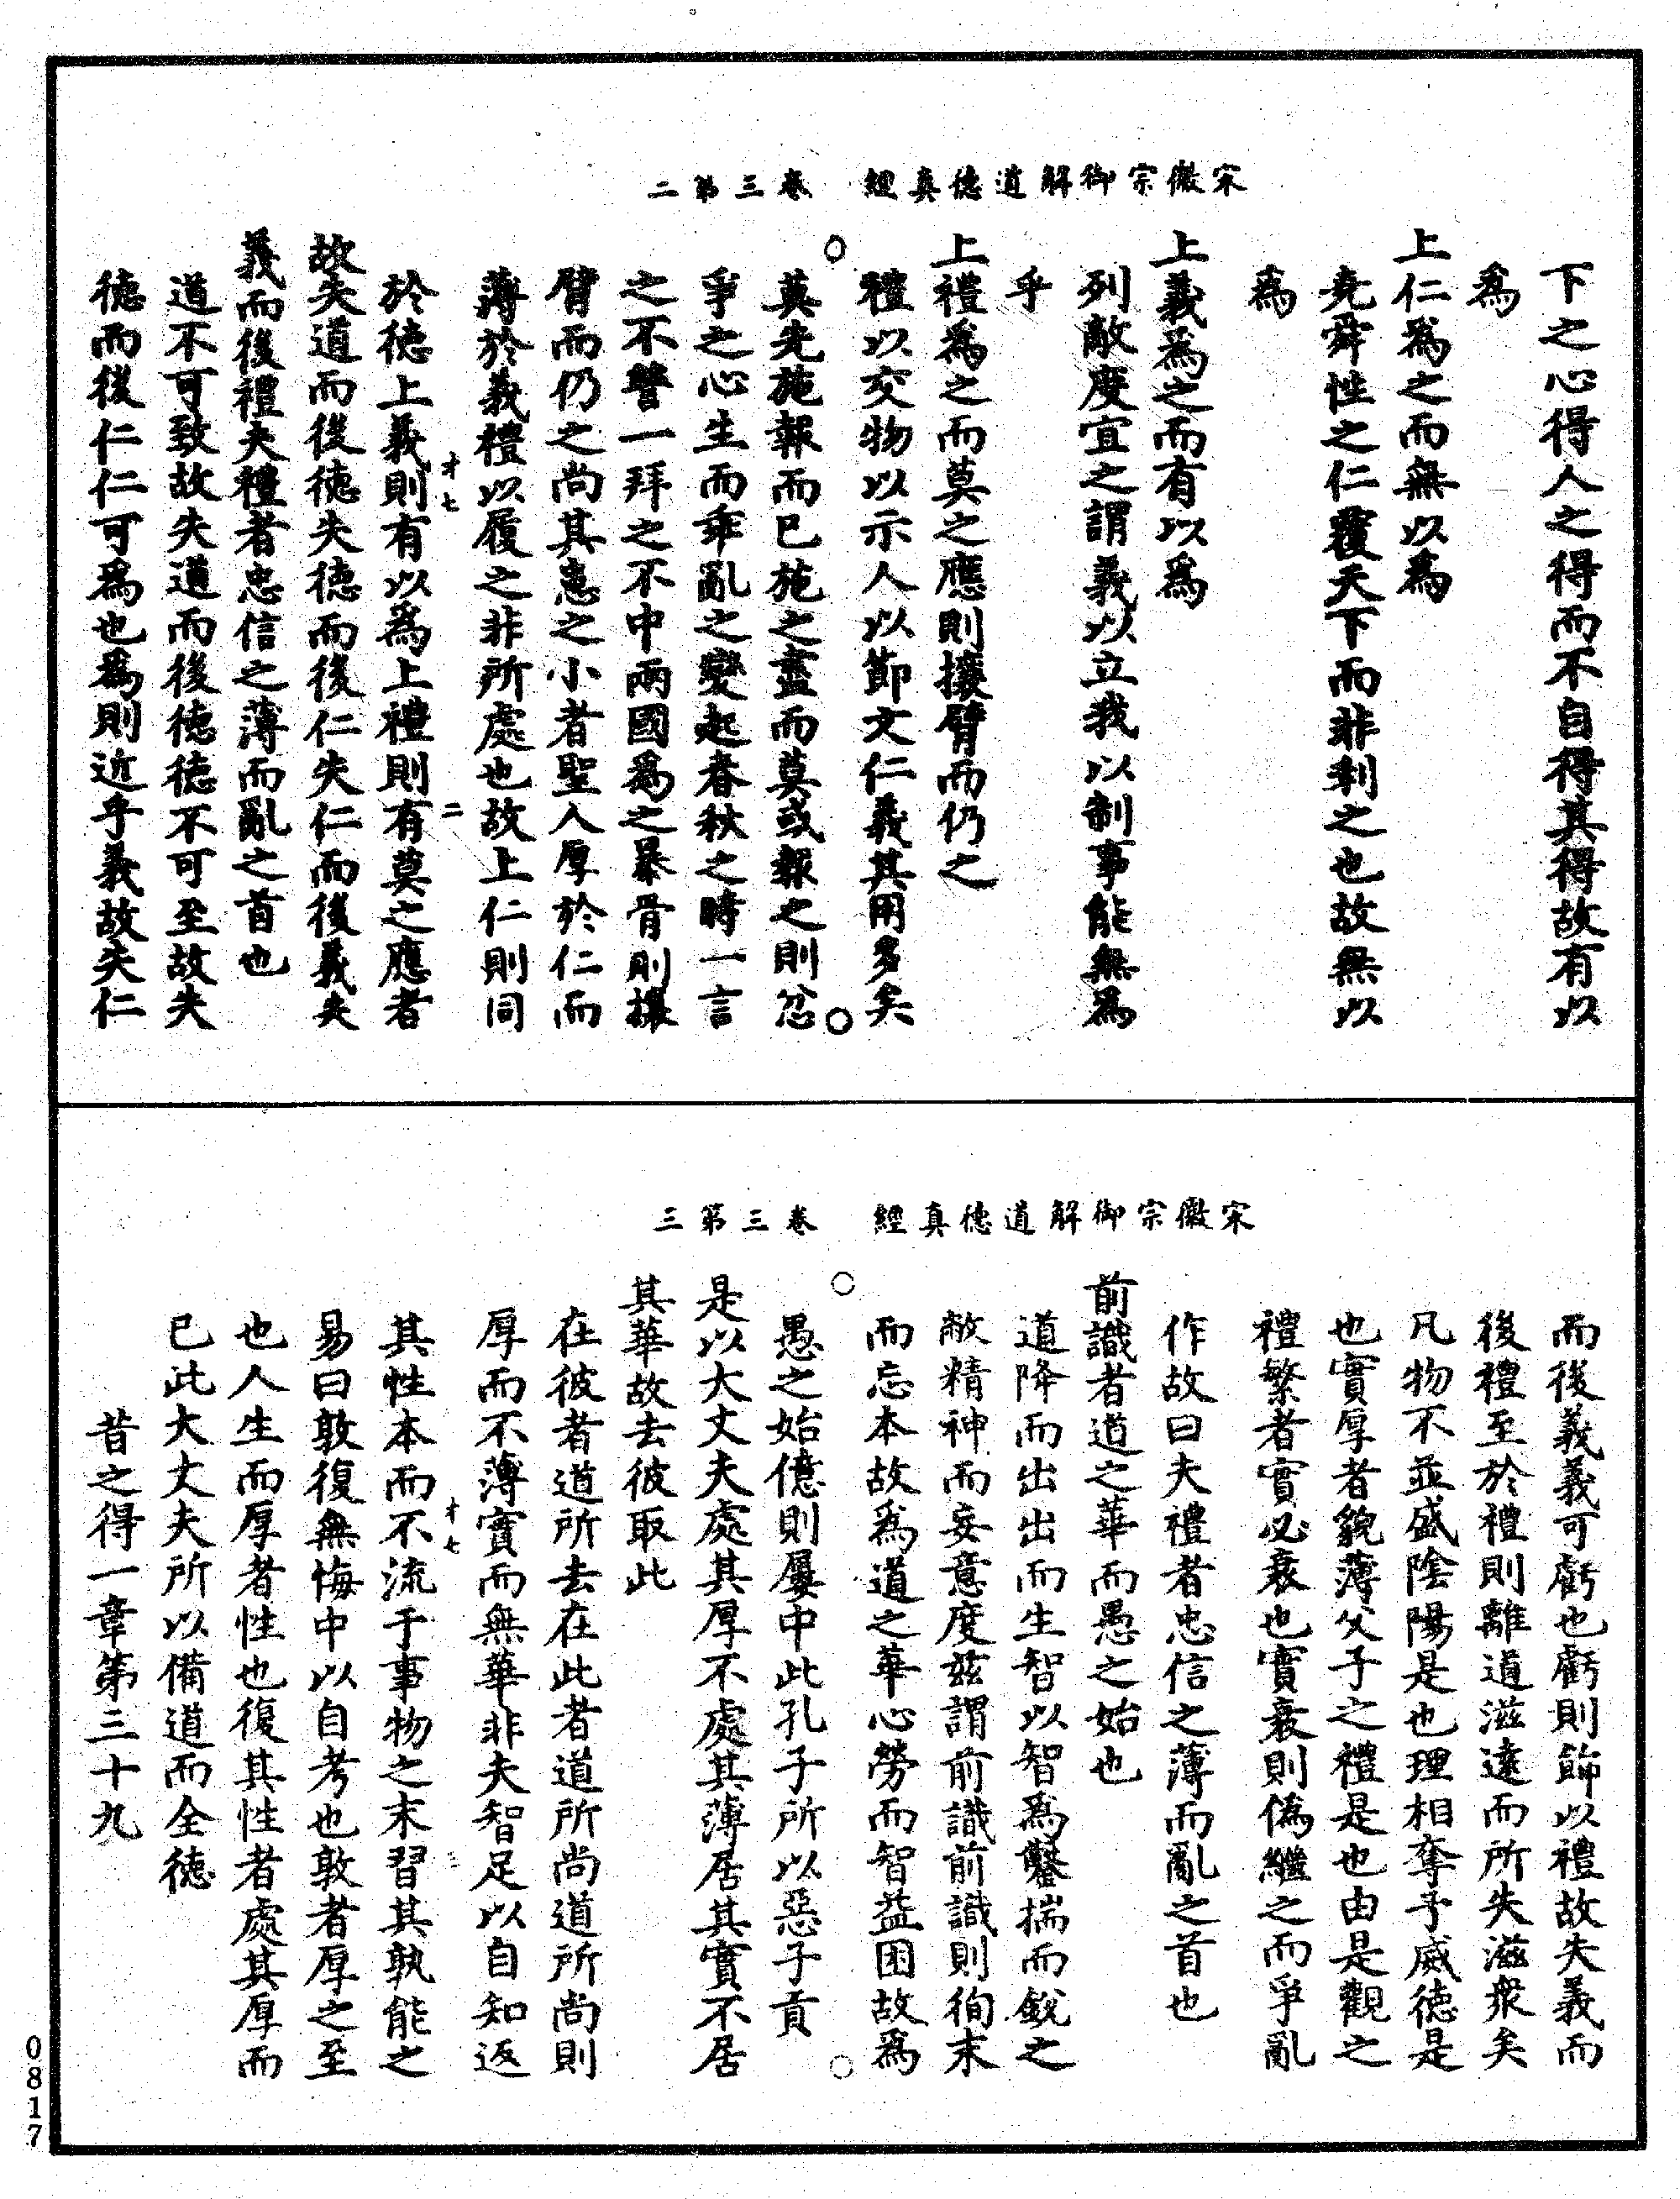 宋徽宗御解道德真經　卷三第二
下之心得人之得而不自得其得故有以
爲
上仁爲之而無以爲
堯舜性之仁覆天下而非利之也故無以
爲
上義爲之而有以爲
列敵度宜之謂義以立我以制事能無爲
乎
上禮爲之而莫之應則攘臂而仍之
禮以交物以示人以節文仁義其用多矣
莫先施報而已施之盡而莫或報之則忿
爭之心生而乖亂之變起春秋之時一言
之不讐一拜之不中兩國爲之暴骨則攘
臂而仍之尚其患之小者聖人厚於仁而
薄於義禮以履之非所處也故上仁則同
於德上義則有以爲上禮則有莫之應者
故失道而後德失德而後仁失仁而後義失
義而後禮夫禮者忠信之薄而亂之首也
道不可致故失道而後德德不可至故失
德而後仁仁可爲也爲則近乎義故失仁
才七
二
宋徽宗御解道德真經　卷三第三
而後義義可虧也虧則飾以禮故失義而
後禮至於禮則離道滋遠而所失滋衆矣
凡物不並盛陰陽是也理相奪予威德是
也實厚者貌薄父子之禮是也由是觀之
禮繁者實必衰也實衰則僞繼之而爭亂
作故曰夫禮者忠信之薄而亂之首也
前識者道之華而愚之始也
道降而出出而生智以智爲鑿揣而銳之
敝精神而妄意度茲謂前識前識則徇末
而忘本故爲道之華心勞而智益困故爲
愚之始億則屢中此孔子所以惡子貢
是以大丈夫處其厚不處其薄居其實不居
其華故去彼取此
在彼者道所去在此者道所尚道所尚則
厚而不薄實而無華非夫智足以自知返
其性本而不流于事物之末習其孰能之
易曰敦復無悔中以自考也敦者厚之至
也人生而厚者性也復其性者處其厚而
已此大丈夫所以備道而全德
昔之得一章第三十九
才七
三
0817